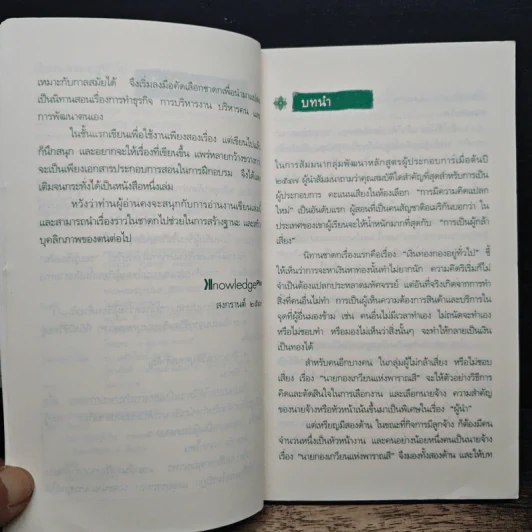 เหมาะกับกาลสมัยได้ จึงเริ่มลงมือคัดเลือกชาดกเพื่อนำมาแปลง
เป็นนิทานสอนเรื่องการทำธุรกิจ การบริหารงาน บริหารคน และ
การพัฒนาตนเอง
ในชั้นแรกเขียนเพื่อใช้งานเพียงสองเรื่อง แต่เขียนไป
ก็นึกสนุก และอยากจะให้เรื่องที่เขียนขึ้น แพร่หลายกว้างขวาง
จะเป็นเพียงเอกสารประกอบการสอนในการฝึกอบรม จึงได้
เติมจนกระทั่งได้เป็นหนังสือหนึ่งเล่ม
หวังว่าท่านผู้อ่านคงจะสนุกกับการอ่านงานเขียน
และสามารถนำเรื่องราวในชาดกไปช่วยในการสร้างฐานะ และ
บุคลิกภาพของตนต่อไป
Knowledge
สงกรานต์
บทนำ
ในการสัมมนากลุ่มพัฒนาหลักสูตรผู้ประกอบการเมื่อต้นปี
๒๕๔๗ ผู้นำสัมมนาถามว่าคุณสมบัติใดสำคัญที่สุดสำหรับการเป็น
ผู้ประกอบการ คะแนนเสียงในห้องเลือก "การมีความคิดแปลก
ใหม่" เป็นอันดับแรก ผู้สอนที่เป็นคนสัญชาติอเมริกันบอกว่า ใน
ประเทศของเขาผู้เรียนจะให้น้ำหนักมากที่สุดกับ "การเป็นผู้กล้า
เสี่ยง"
นิทานชาดกเรื่องแรกคือเรื่อง "เงินทองกองอยู่ทั่วไป" ชี้
ให้เห็นว่าการจะหาเงินหาทองนั้นทำไม่ยากนัก ความคิดริเริ่มก็ไม่
จำเป็นต้องแปลกประหลาดมหัศจรรย์ แต่อันที่จริงเกิดจากการทำ
สิ่งที่คนอื่นไม่ทำ การเป็นผู้เห็นความต้องการสินค้าและบริการใน
จุดที่ผู้อื่นมองข้าม เช่น คนอื่นไม่มีเวลาทำเอง ไม่ถนัดจะทำเอง
หรือไม่ชอบทำ หรือมองไม่เห็นว่าสิ่งนั้นๆ จะทำให้กลายเป็นเงิน
เป็นทองได้
สำหรับคนอีกบางคน ในกลุ่มผู้ไม่กล้าเสี่ยง หรือไม่ชอบ
เสี่ยง เรื่อง "นายกองเกวียนแห่งพาราณสี" จะให้ตัวอย่างวิธีการ
คิดและตัดสินใจในการเลือกงาน และเลือกนายจ้าง ความสำคัญ
ของนายจ้างหรือหัวหน้าเน้นขึ้นมาเป็นพิเศษในเรื่อง "ผู้นำ"
แต่เหรียญมีสองด้าน ในขณะที่กิจการมีลูกจ้าง ก็ต้องมีคน
จำนวนหนึ่งเป็นหัวหน้างาน และคนอย่างน้อยหนึ่งคนเป็นนายจ้าง
เรื่อง "นายกองเกวียนแห่งพาราณสี" จึงมองทั้งสองด้าน และให้บท